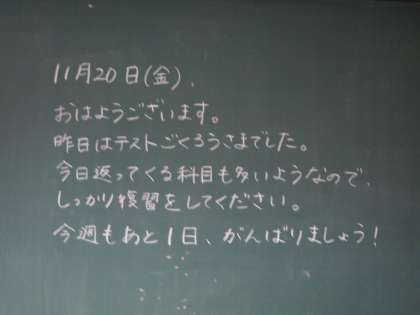 11月20日(金).
おはようございます。
昨日はテストごくろうさまでした。
今日返ってくる科目も多いようなので、
しっかり復習をしてください。
今週もあと1日、がんばりましょう!